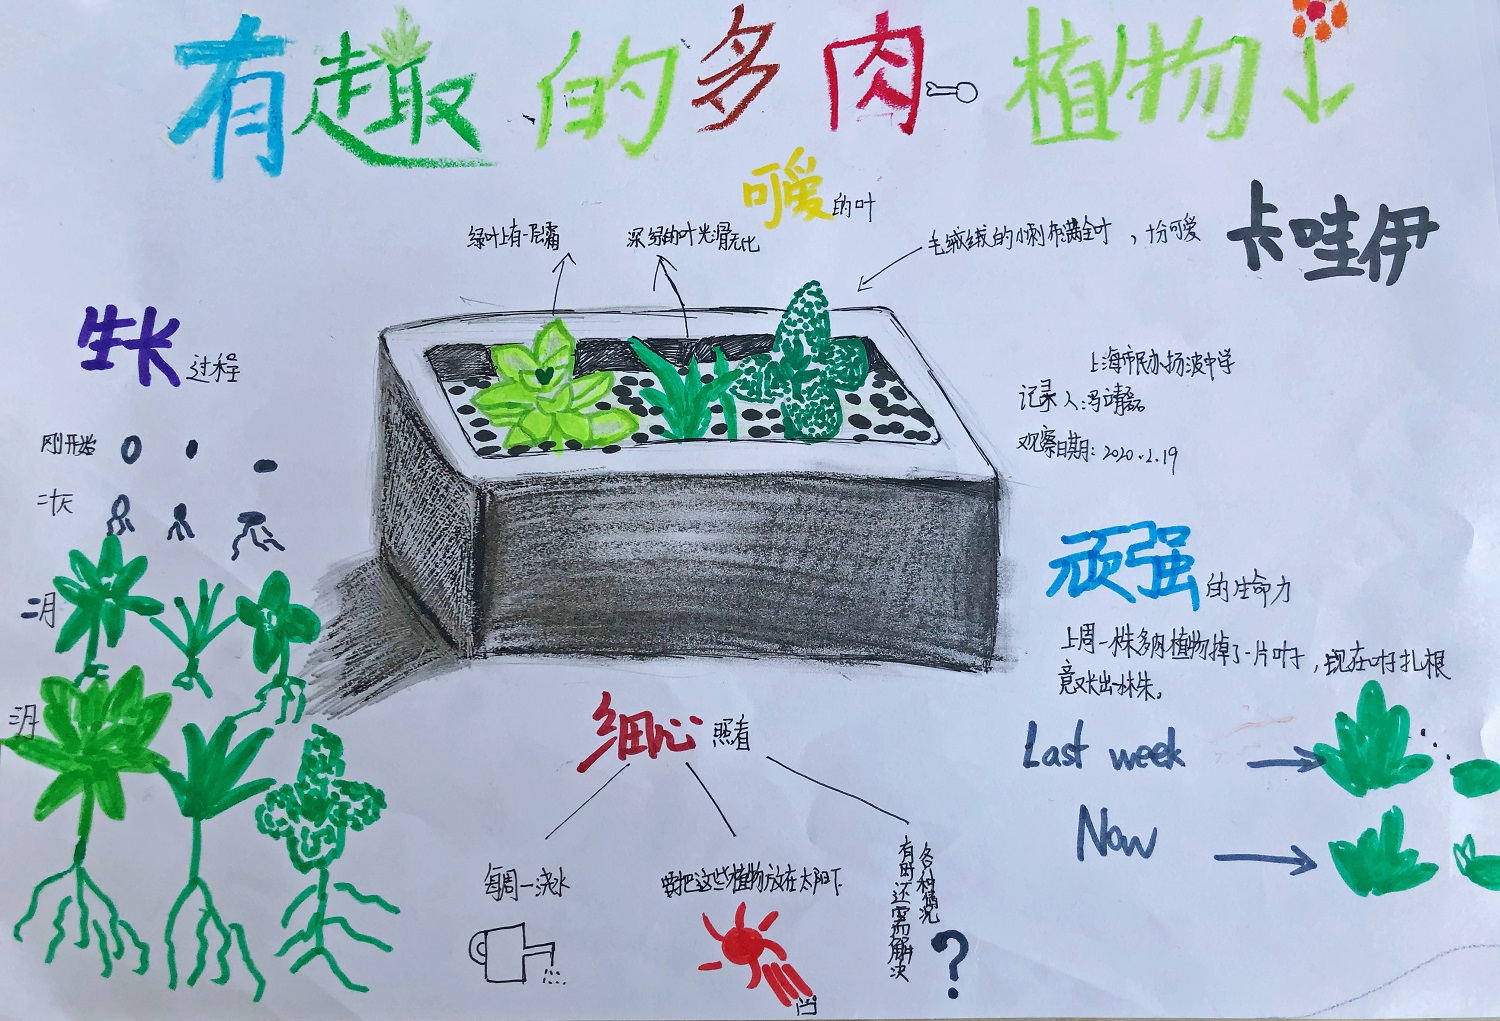 有趣的多肉植物
可爱的叶
绿叶上有一层霜
深绿的叶光滑无比
毛绒绒的小刺布满全叶，十分可爱
卡哇伊
上海市民办扬波中学
记录人:冯靖磊
观察日期：2020.2.19
生长过程
刚开始
二十天
二月
三月
顽强的生命力
上周一株多肉植物掉了一片叶子，现在叶子扎根
竟又长出一株。
Last week
Now
细心照看
每周一浇水
要把这些植物放在太阳下
有时还需解决
各种情况
?